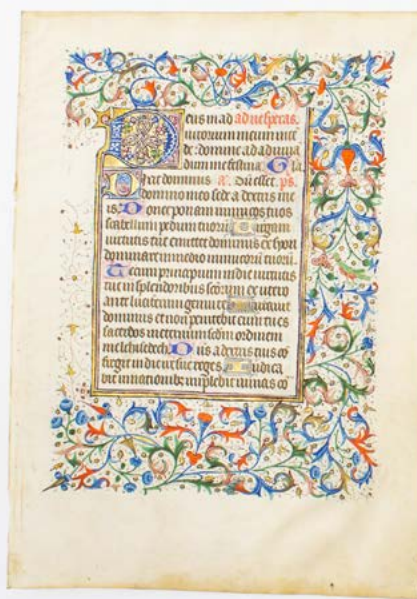 Deus in ad ad vesperas.
iutorium meum inte
de: domine ad adiuua
dum me festina Gla
Dixit dominus a. Dū esset. ps.
domino meo sede a dextris me
is. Donec ponam inimicos tuos
scabellum pedum tuorū Virgam
uirtutis tue emittet dominus ex syon
dominare in medio inimicorū tuorū.
Tecum principium in die uirtutis
tue in splendoribus scōrum ex utero
ante luciferum genui te Iurauit
dominus et non penitebit eum tu es
sacerdos in eternum scdm ordinem
melchisedech. Dn̄s a dextris tuis cō
fregit in die ire sue reges Iudica
bit in nationibꝫ implebit ruinas cō